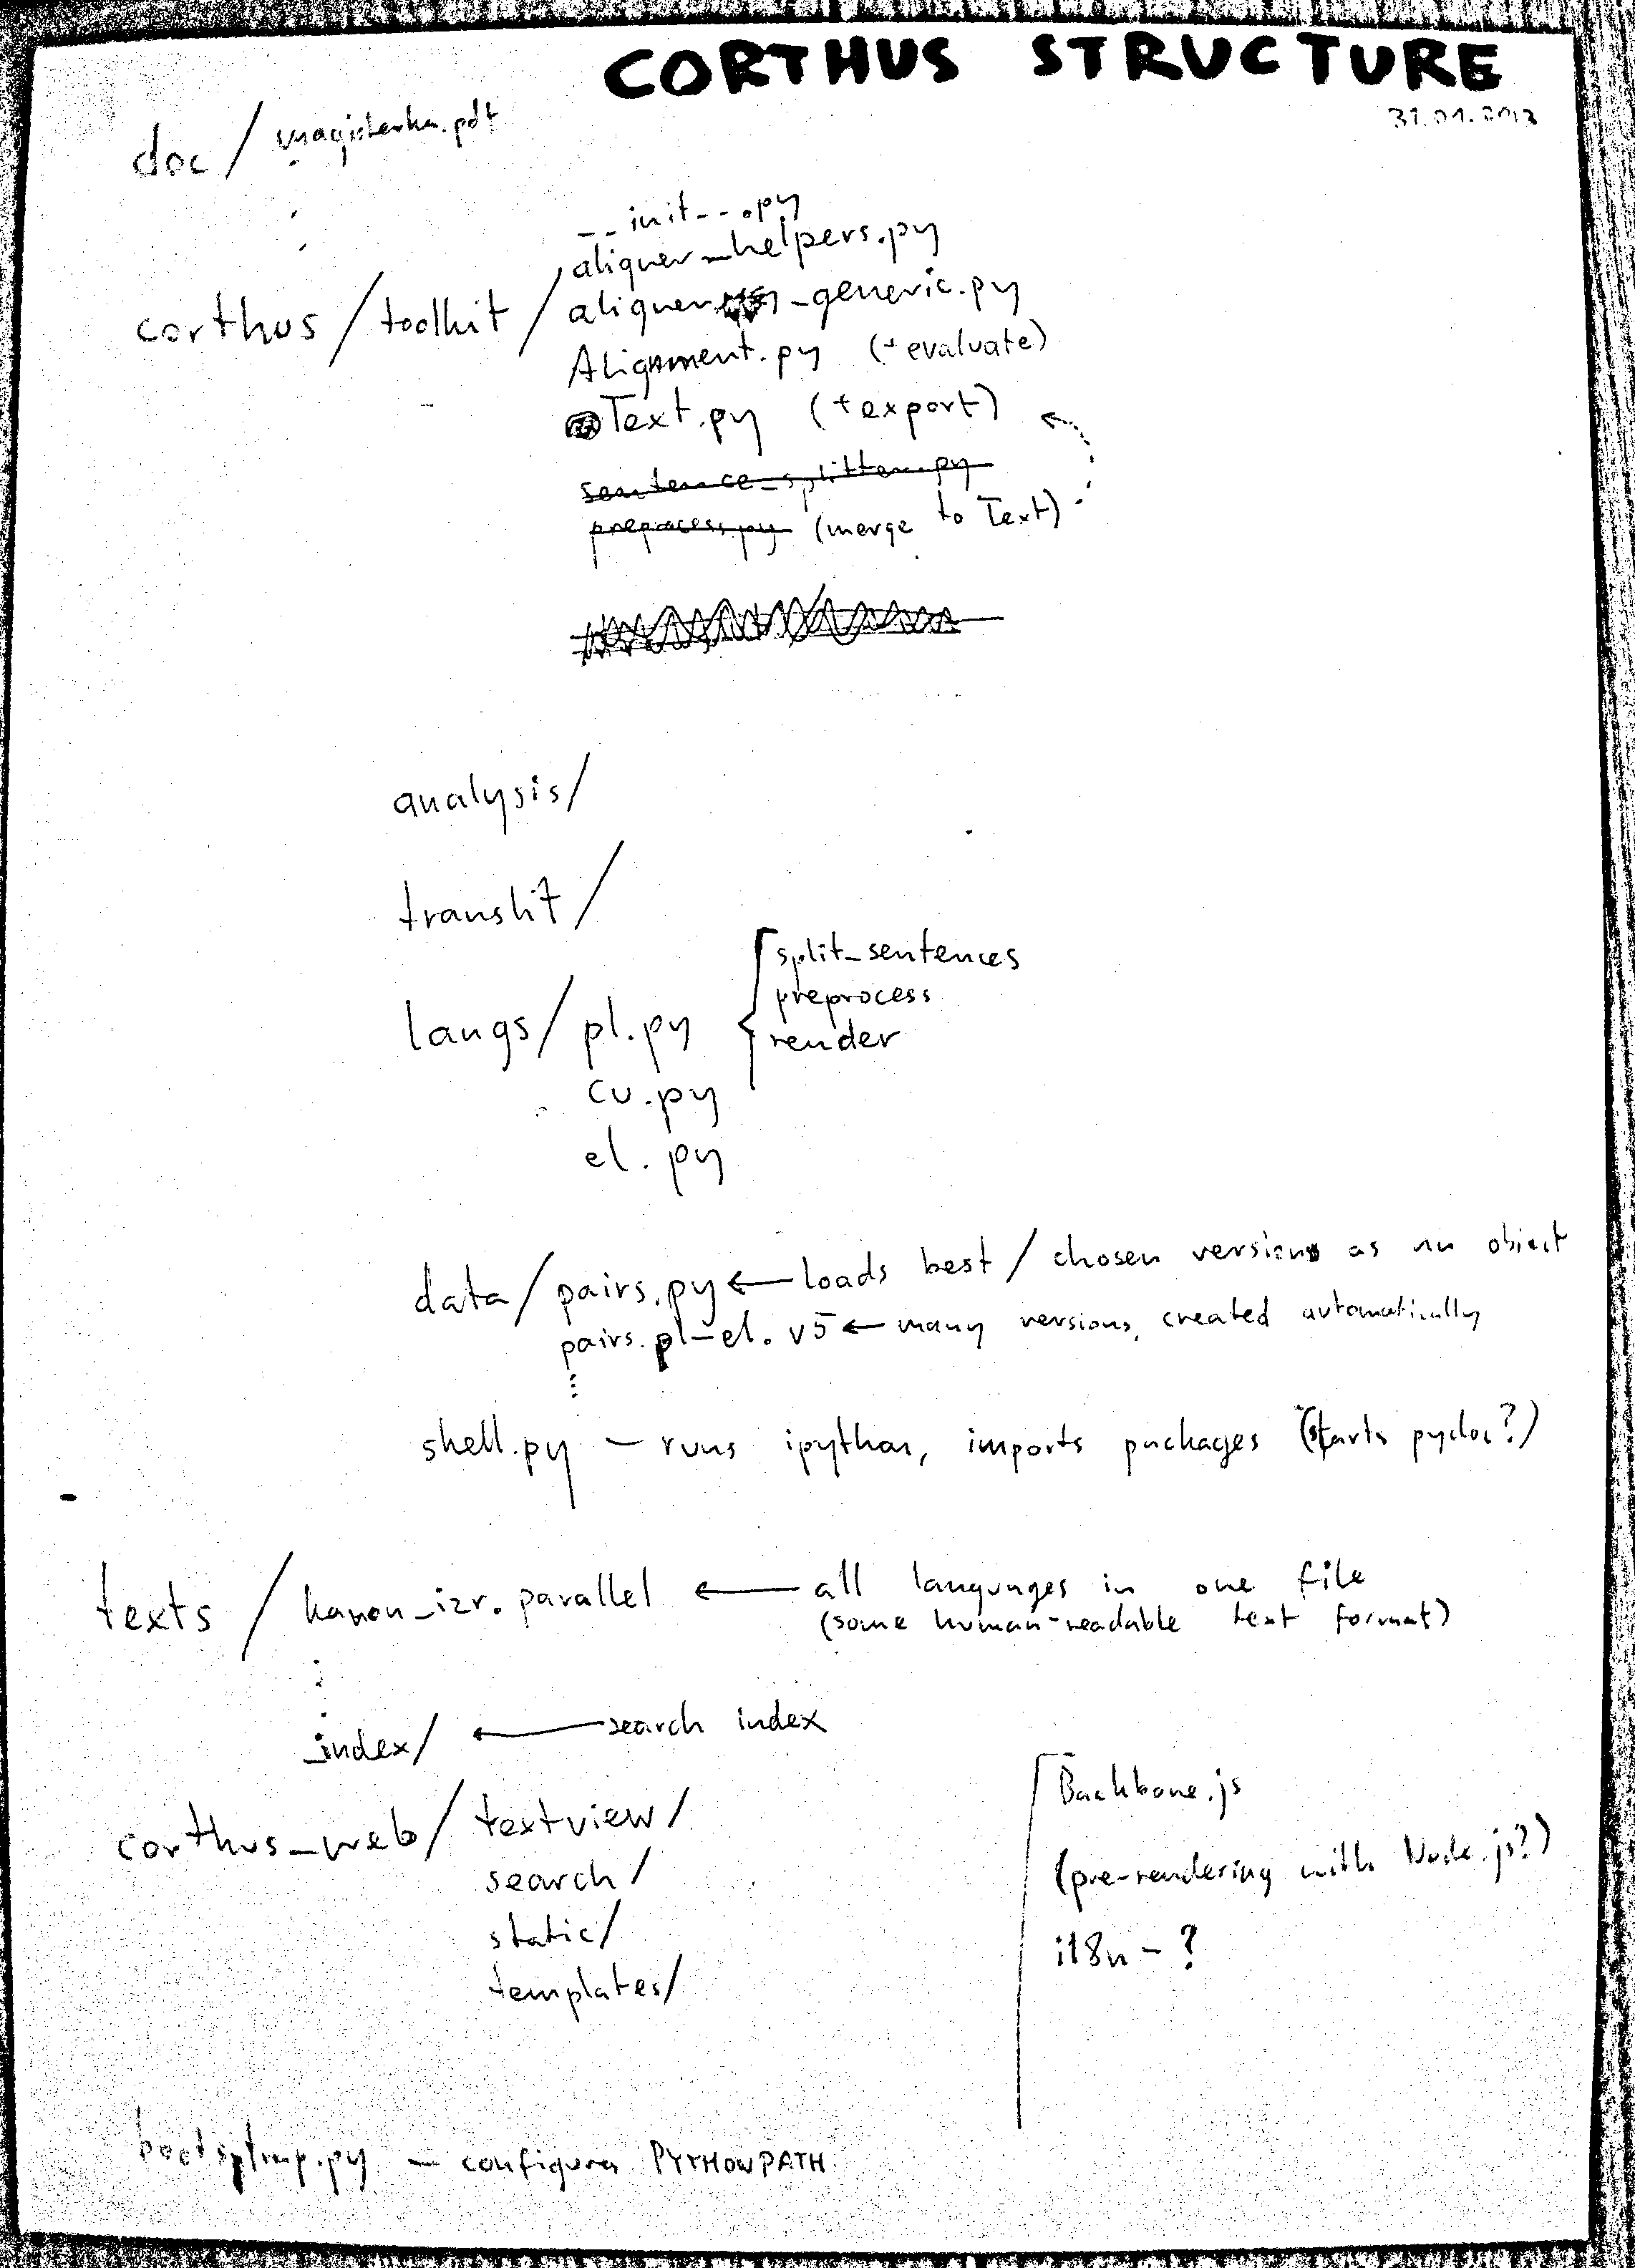 CORTHUS STRUCTURE
31.01.2013
doc / magisterka.pdf
__init__.py
aligner_helpers.py
corthus / toolkit / aligner_generic.py
Alignment.py (+evaluate)
Text.py (+export)
sentence_splitter.py
preprocess.py (merge to Text)
analysis/
translit/
langs/ pl.py
split_sentences
preprocess
render
cu.py
el.py
data/ pairs.py ← loads best / chosen versions as an object
pairs.pl-el.v5 ← many versions, created automatically
shell.py – runs ipython, imports packages (starts pydoc?)
texts / kanon_izr.parallel ← all languages in one file
(some human-readable text format)
_index/ ← search index
corthus_web/ textview/
search/
static/
templates/
Backbone.js
(pre-rendering with Node.js?)
i18n - ?
– configures PYTHONPATH